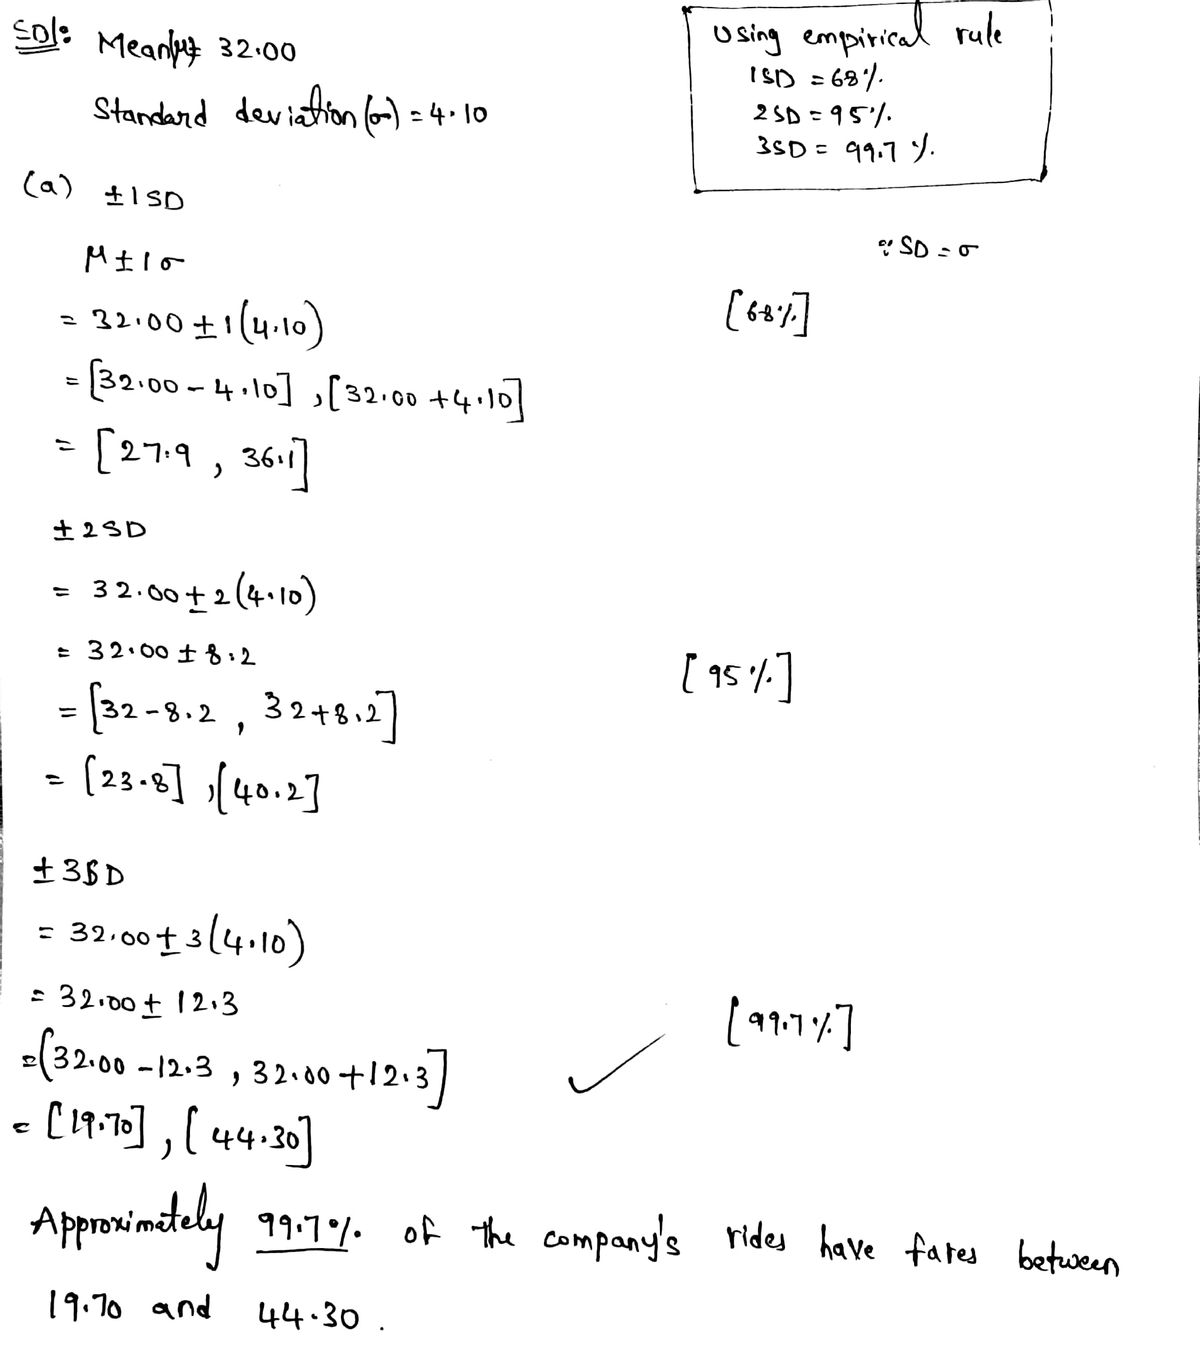 Sol: Mean(μ) = 32.00
Standard deviation (σ) = 4.10
Using empirical rule
1SD = 68%.
2SD = 95%.
3SD = 99.7 %.
(a) ±1SD
∵ SD = σ
μ ± 1σ
= 32.00 ± 1(4.10)
[68%]
= [32.00 - 4.10] , [32.00 + 4.10]
= [27.9 , 36.1]
± 2SD
= 32.00 ± 2(4.10)
= 32.00 ± 8.2
[95%]
= [32 - 8.2 , 32 + 8.2]
= [23.8] , [40.2]
± 3SD
= 32.00 ± 3(4.10)
= 32.00 ± 12.3
[99.7%]
= (32.00 - 12.3 , 32.00 + 12.3]
= [19.70] , [44.30]
Approximately 99.7%. of the company's rides have fares between
19.70 and 44.30 .